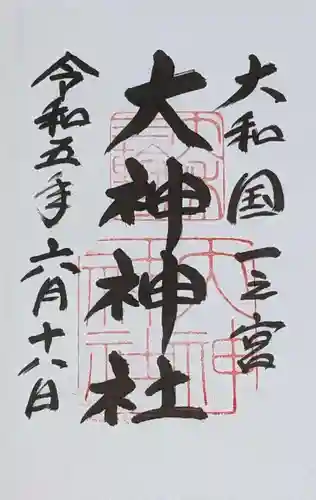 大和国一之宮
大神神社
令和五年六月十八日
大神
神社